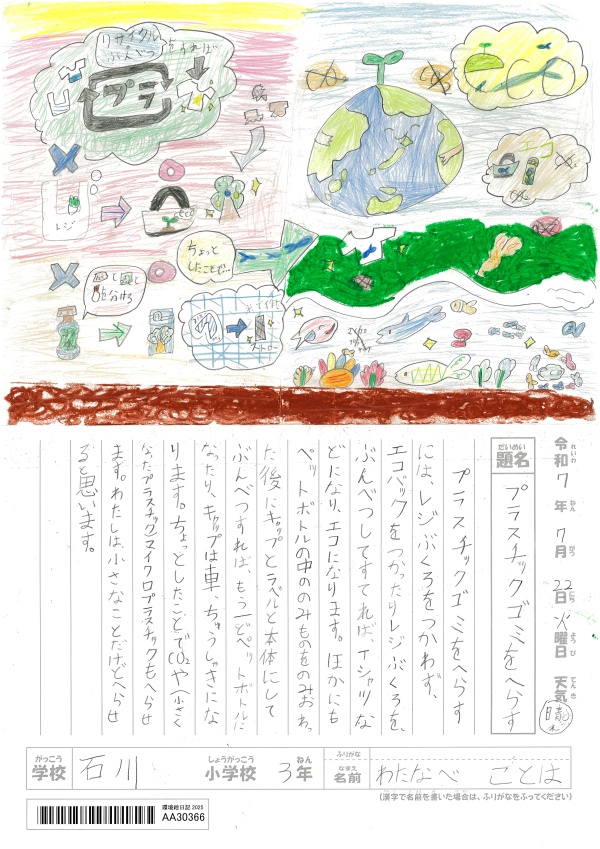 リサイクル
ぶんべつ
をすれば
プラ
エコ
レジ
ちょっと
したことで…
と
と
分ける
ストロー
令和 7年 7月 22日 火曜日 天気 晴れ
れいわ ねん がつ にち ようび てんき
だいめい
題名 プラスチックゴミをへらす
プラスチックゴミをへらす
には、レジぶくろをつかわず、
エコバックをつかったりレジぶくろを、
ぶんべつしてすてれば、Tシャツな
どになり、エコになります。ほかにも
ペットボトルの中ののみものをのみおわっ
た後にキャップとラベルと本体にして
ぶんべつすれば、もう一どペットボトルに
なったり、キャップは車、ちゅうしゃきにな
ります。ちょっとしたことでCO2や(小さく
なったプラスチック)マイクロプラスチックもへらせ
ます。わたしは、小さなことだけどへらせ
ると思います。
がっこう しょうがっこう ねん ふりがな
学校 石川 小学校 3年
なまえ
名前 わたなべ ことは
(漢字で名前を書いた場合は、ふりがなをふってください)
環境絵日記 2025
AA30366